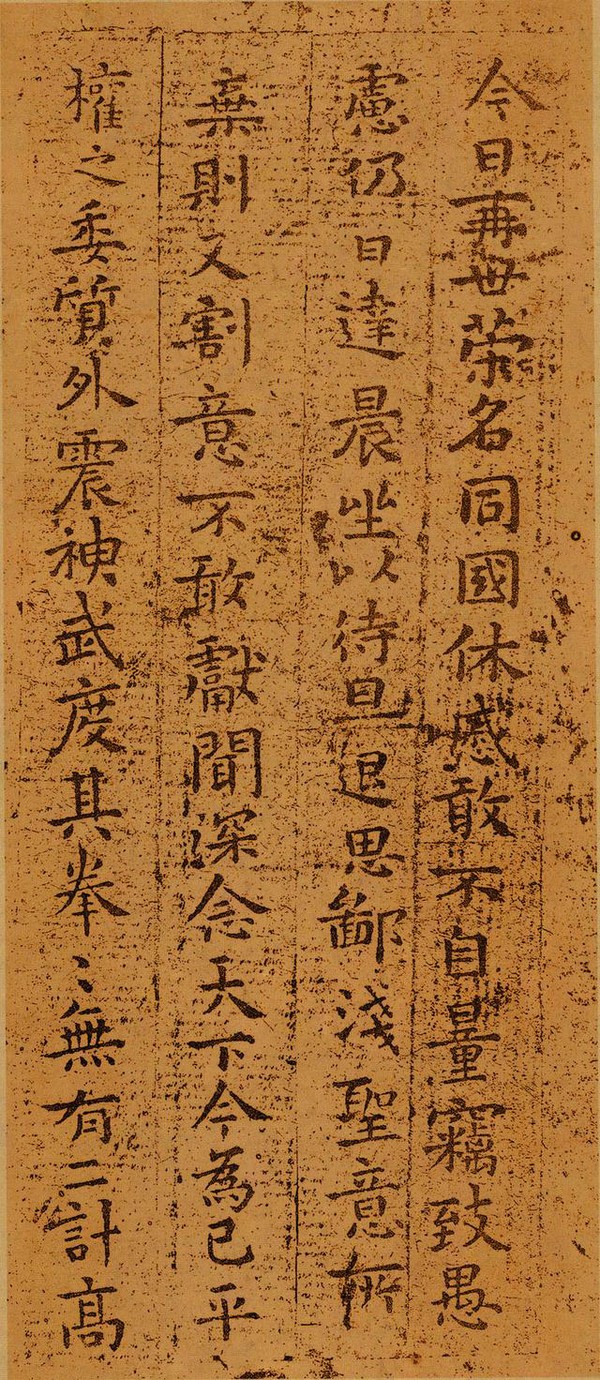 今日再世荣名同國休慼敢不自量竊致愚
慮仍日達晨坐以待旦退思鄙淺聖意所
棄則又割意不敢獻聞深念天下今為已平
權之委質外震神武度其拳〻無有二計髙